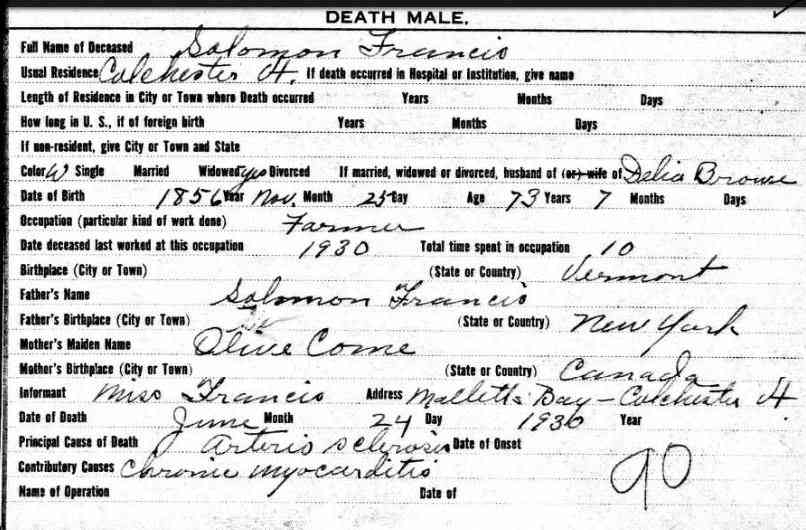 DEATH MALE.
Full Name of Deceased Solomon Francis
Usual Residence Colchester Vt. If death occurred in Hospital or Institution, give name
Length of Residence in City or Town where Death occurred Years Months Days
How long in U. S., if of foreign birth Years Months Days
If non-resident, give City or Town and State
Color W Single Married Widowed yes Divorced If married, widowed or divorced, husband of (or) wife of Delia Browne
Date of Birth 1856 Year Nov. Month 25 Day Age 73 Years 7 Months Days
Occupation (particular kind of work done) Farmer
Date deceased last worked at this occupation 1930 Total time spent in occupation 10
Birthplace (City or Town) (State or Country) Vermont
Father's Name Solomon Francis
Father's Birthplace (City or Town) (State or Country) New York
Mother's Maiden Name Olive Come
Mother's Birthplace (City or Town) (State or Country) Canada
Informant Miss Francis Address Malletts Bay - Colchester Vt
Date of Death June Month 24 Day 1930 Year
Principal Cause of Death Arterio sclerosis Date of Onset
Contributory Causes Chronic myocarditis
90
Name of Operation Date of